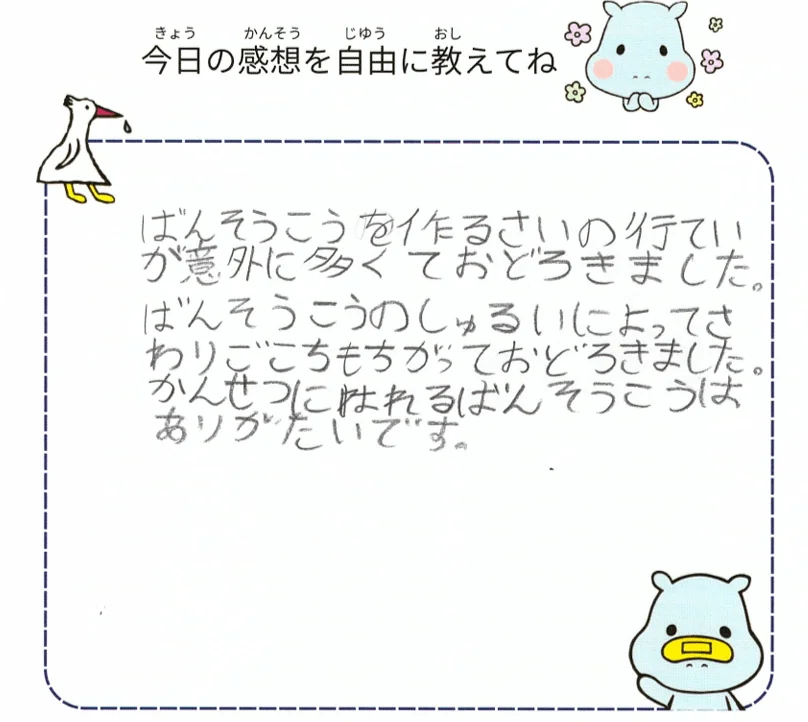 きょう かんそう じゆう おし
今日の感想を自由に教えてね
ばんそうこうを作るさいの行てい
が意外に多くておどろきました。
ばんそうこうのしゅるいによってさ
わりごこちもちがっておどろきました。
かんせつにはれるばんそうこうは
ありがたいです。